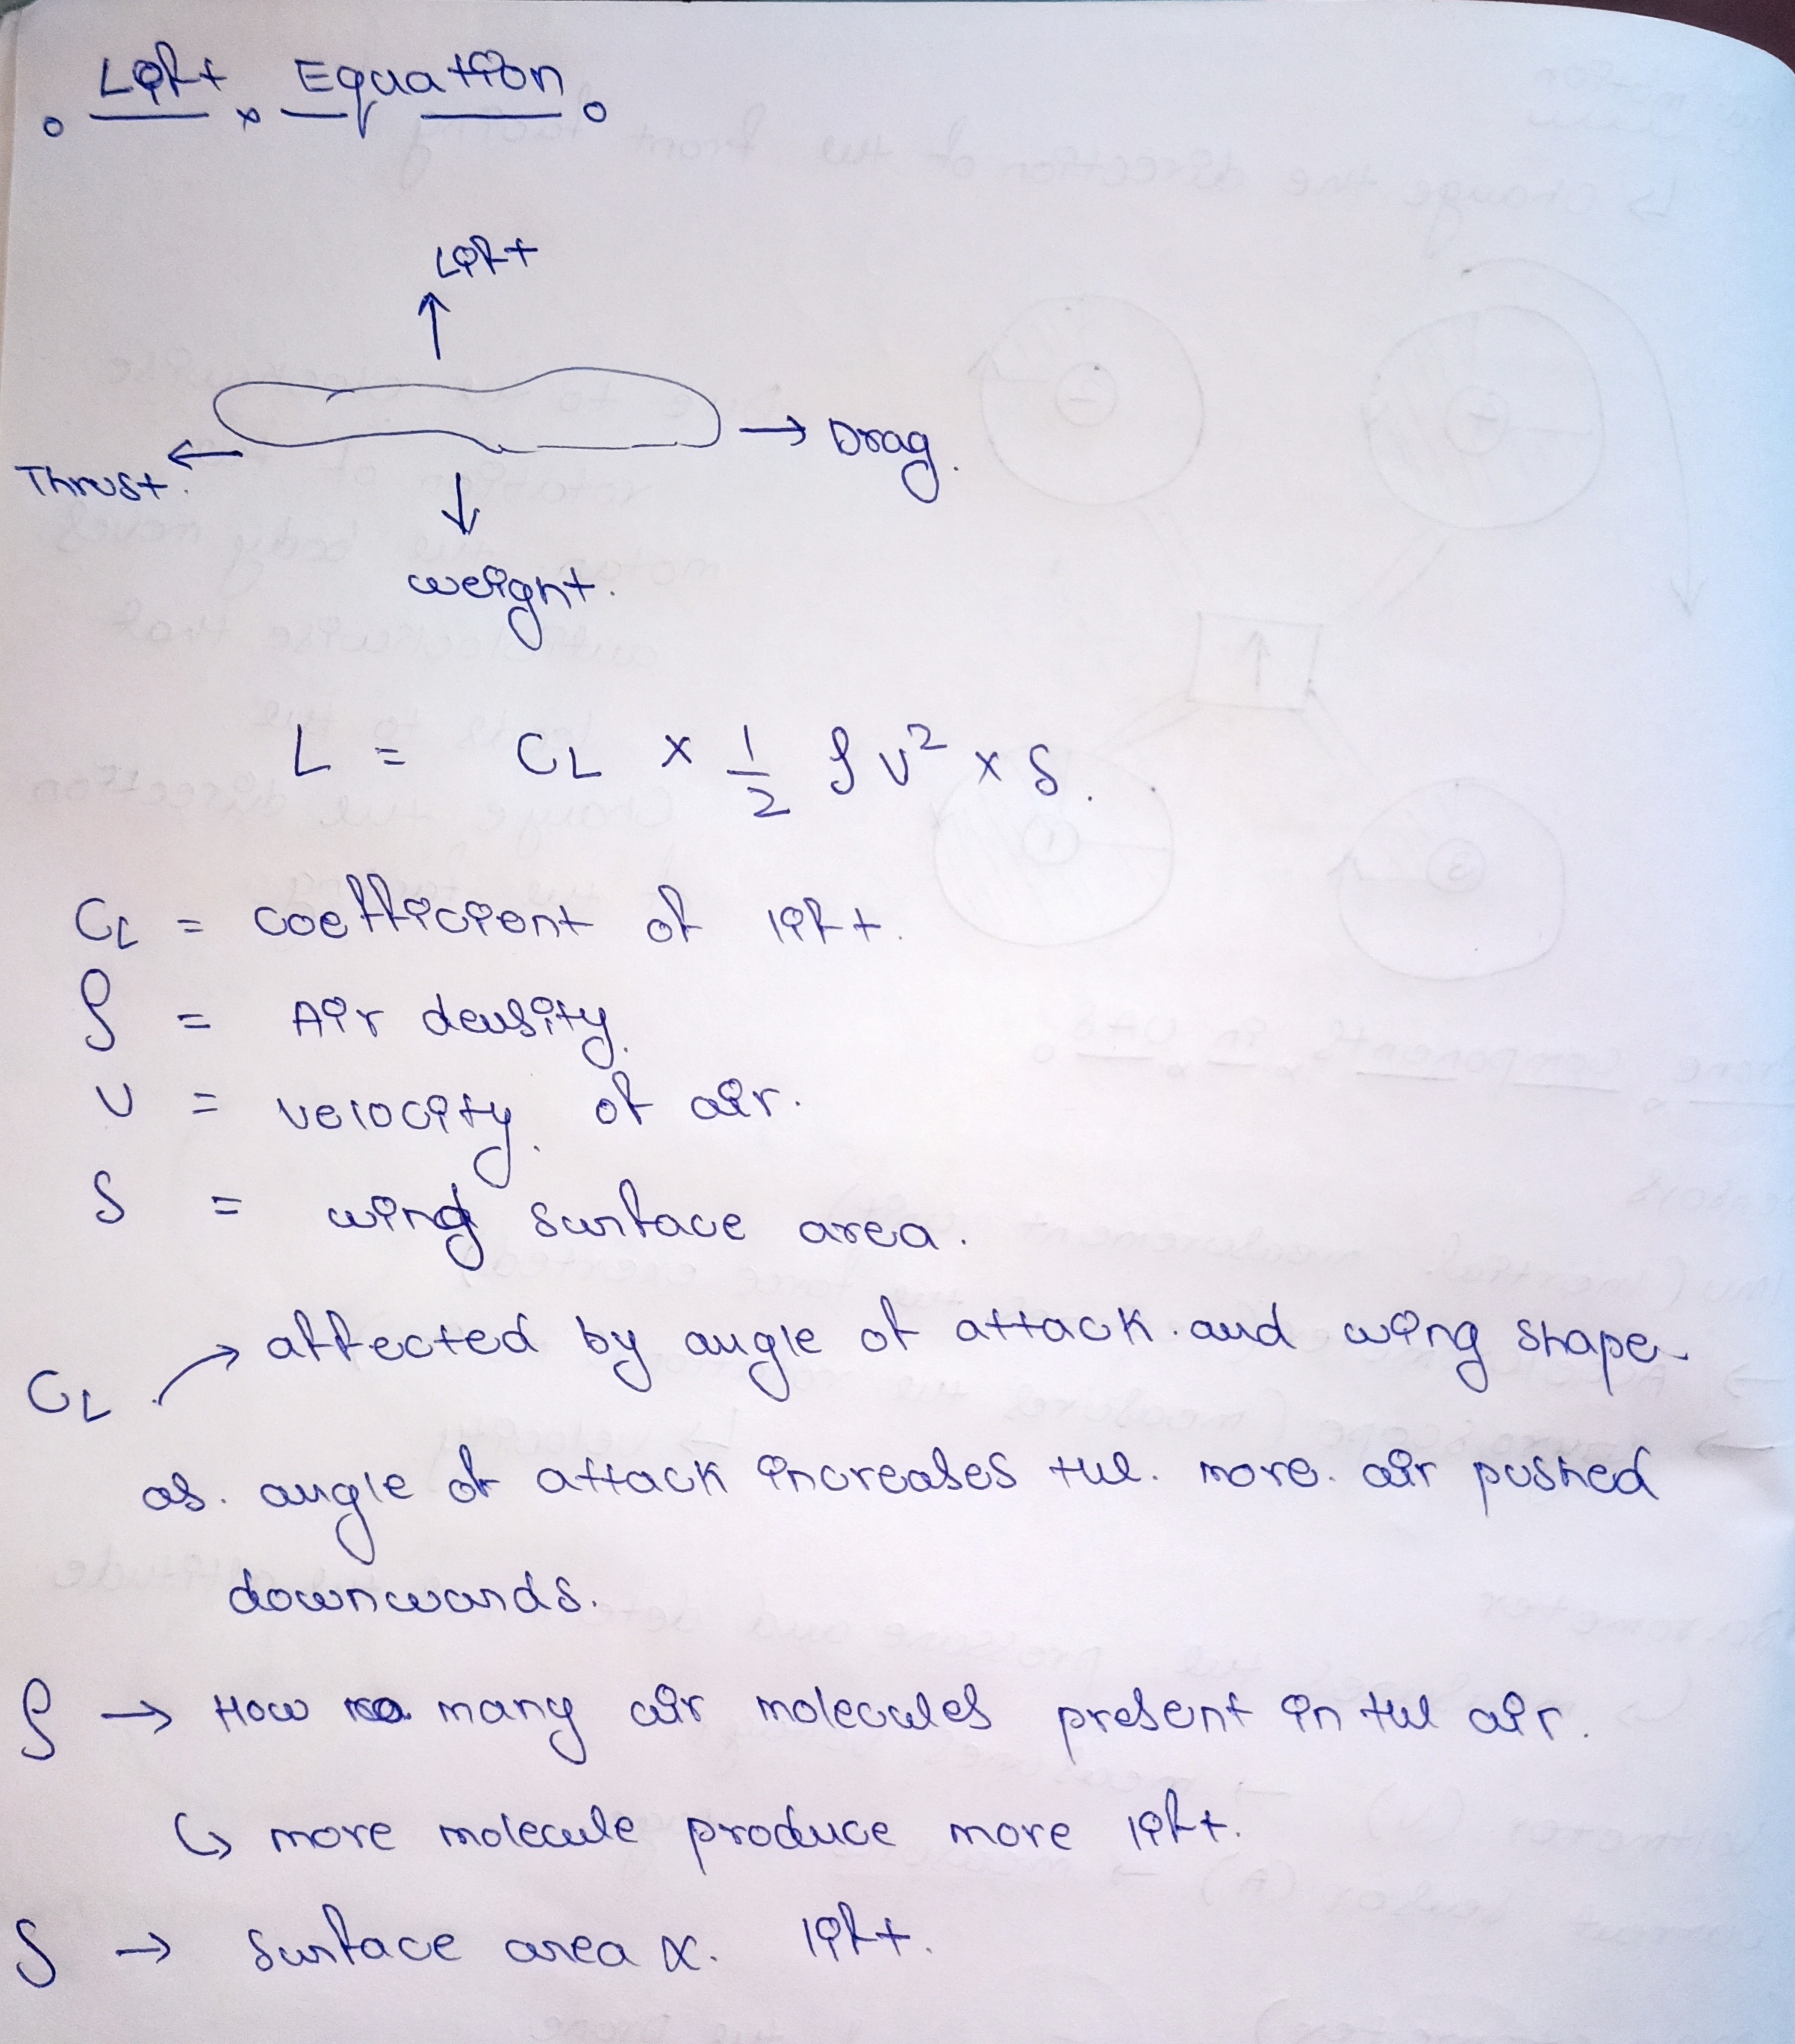 Lift Equation
Lift
Drag.
Thrust.
weight.
L = CL × 1/2 ρv² × S.
CL = coefficient of lift.
ρ = Air density.
v = velocity of air.
S = wing surface area.
CL → affected by angle of attack. and wing shape.
as. angle of attack increases the. more. air pushed
downwards.
ρ → How many air molecules present in the air.
↳ more molecule produce more lift.
S → surface area α. lift.